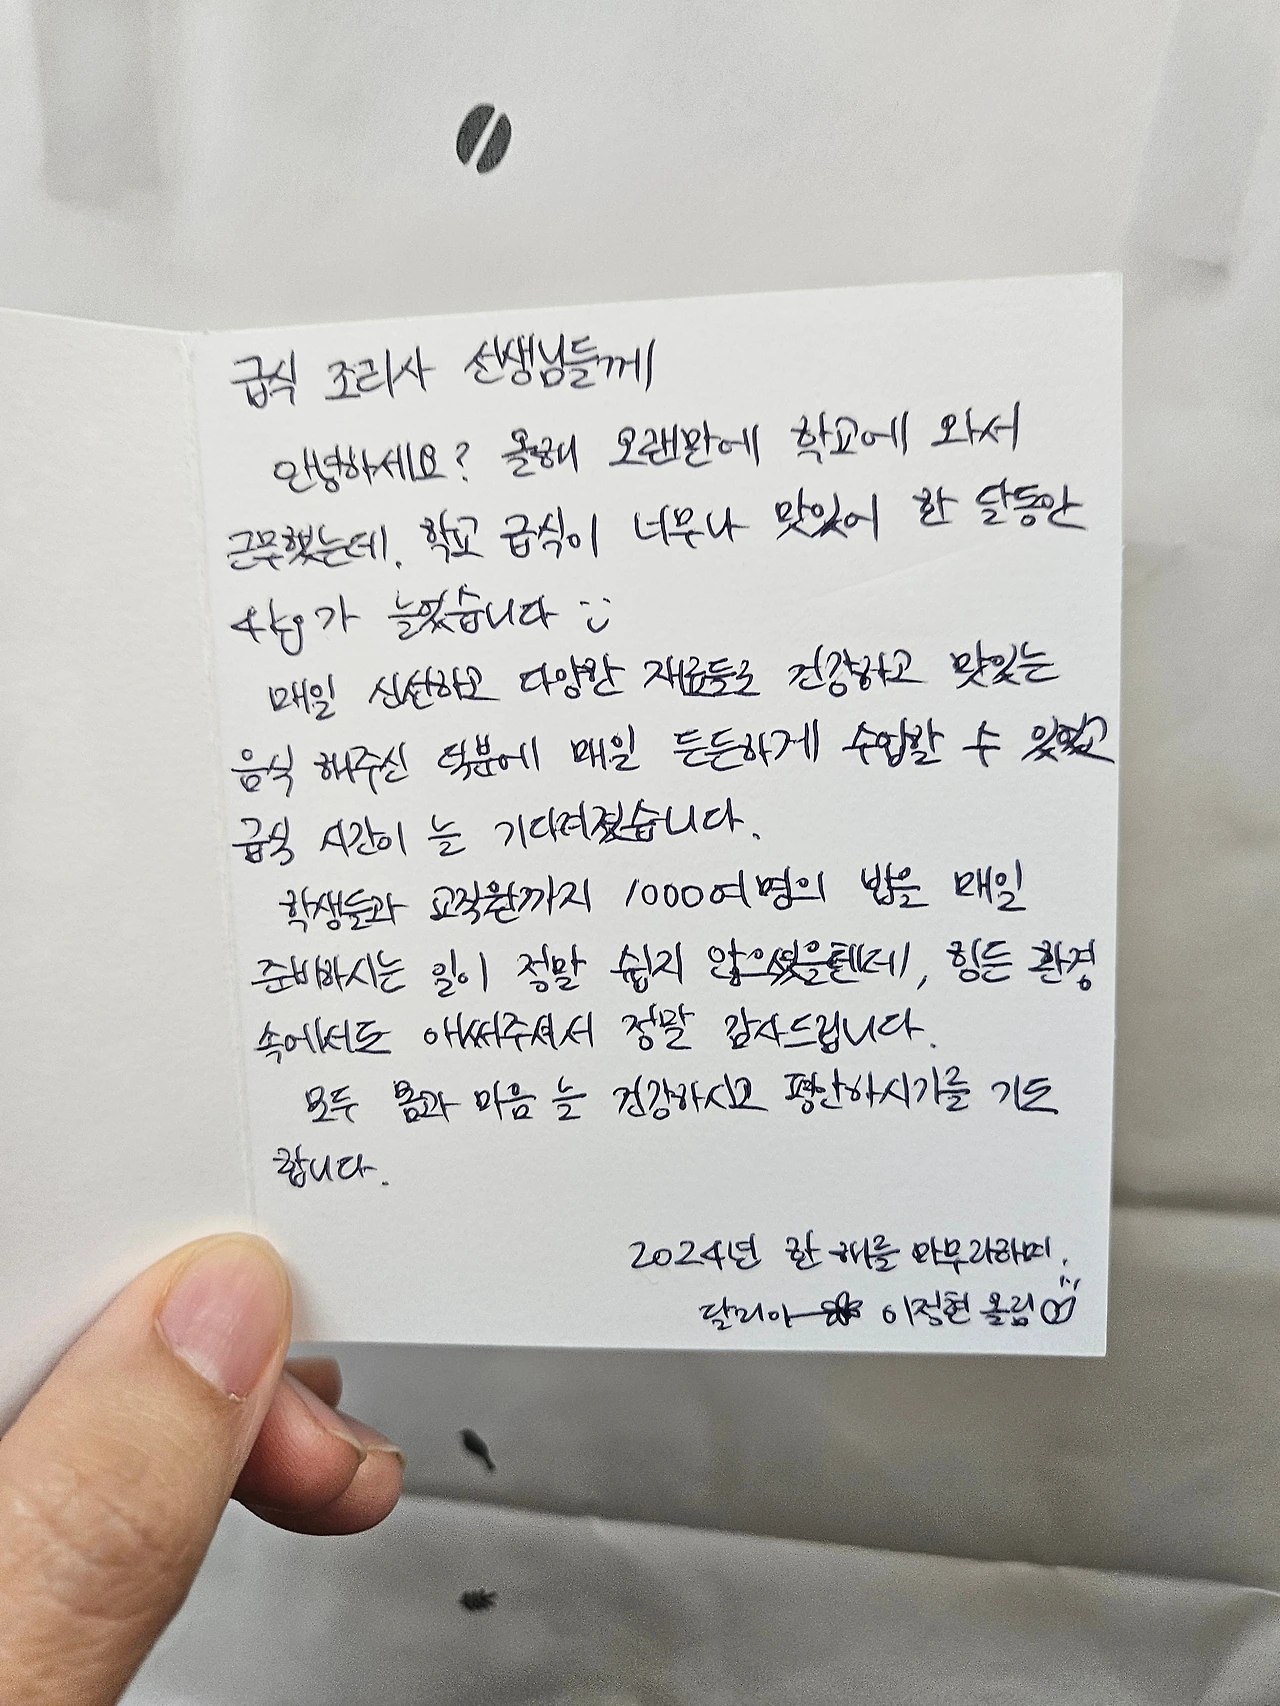 급식 조리사 선생님들께
안녕하세요? 올해 오랜만에 학교에 와서
근무했는데, 학교 급식이 너무나 맛있어 한 달동안
4kg가 늘었습니다 :)
매일 신선하고 다양한 재료들로 건강하고 맛있는
음식 해주신 덕분에 매일 든든하게 수업할 수 있었고
급식 시간이 늘 기다려졌습니다.
학생들과 교직원까지 1000여명의 밥을 매일
준비하시는 일이 정말 쉽지 않으셨을텐데, 힘든 환경
속에서도 애써주셔서 정말 감사드립니다.
모두 몸과 마음 늘 건강하시고 평안하시기를 기도
합니다.
2024년 한 해를 마무리하며,
달리아 이정현 올림